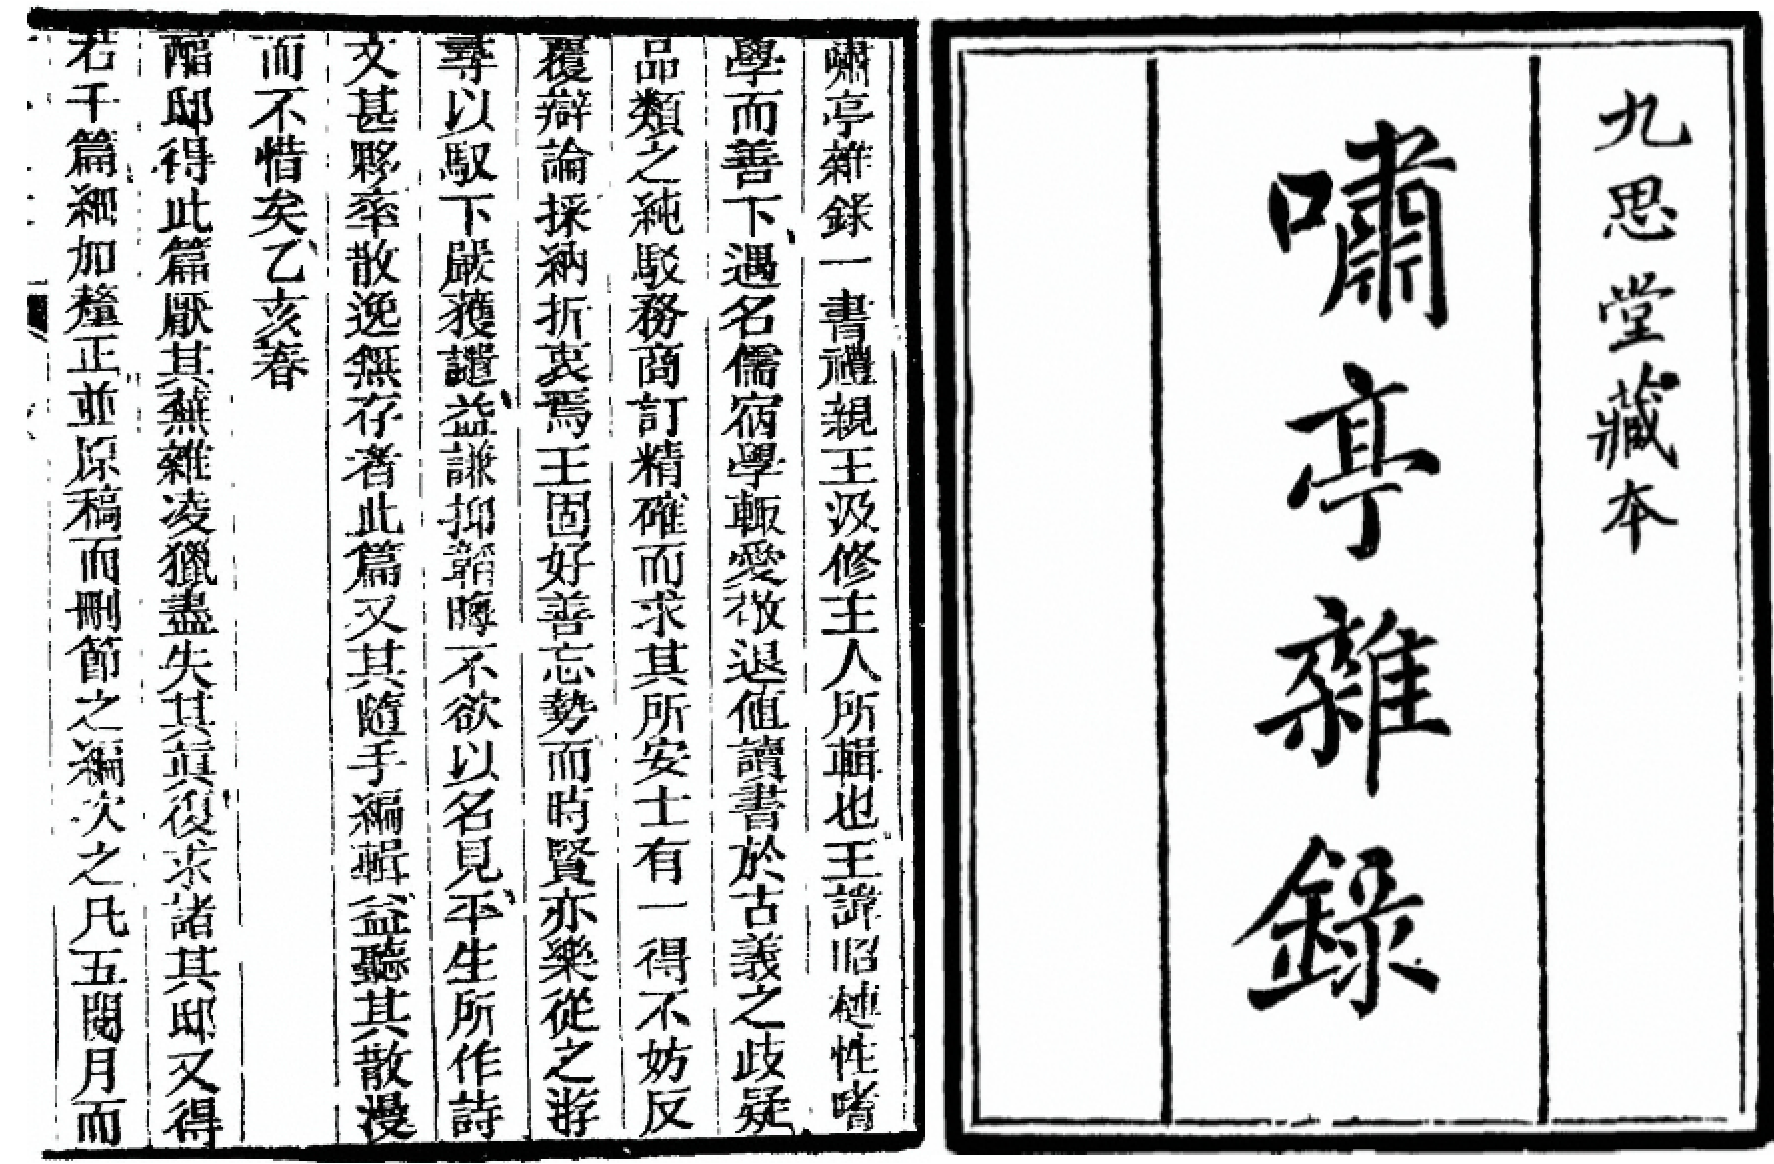 九思堂藏本
嘯亭雜錄
嘯亭雜錄一書禮親王汲修主人所輯也王諱昭槤性嗜
學而善下遇名儒宿學輒愛敬退值讀書於古義之歧疑
品類之純駁務商訂精確而求其所安士有一得不妨反
覆辯論採納折衷焉王固好善忘勢而時賢亦樂從之游
尋以馭下嚴獲譴益謙抑韜晦不欲以名見平生所作詩
文甚夥率散逸無存者此篇又其隨手編輯益聽其散漫
而不惜矣乙亥春
醕邸得此篇厭其蕪雜凌獵盡失其真復求諸其邸又得
若干篇細加釐正並原稿而刪節之編次之凡五閱月而